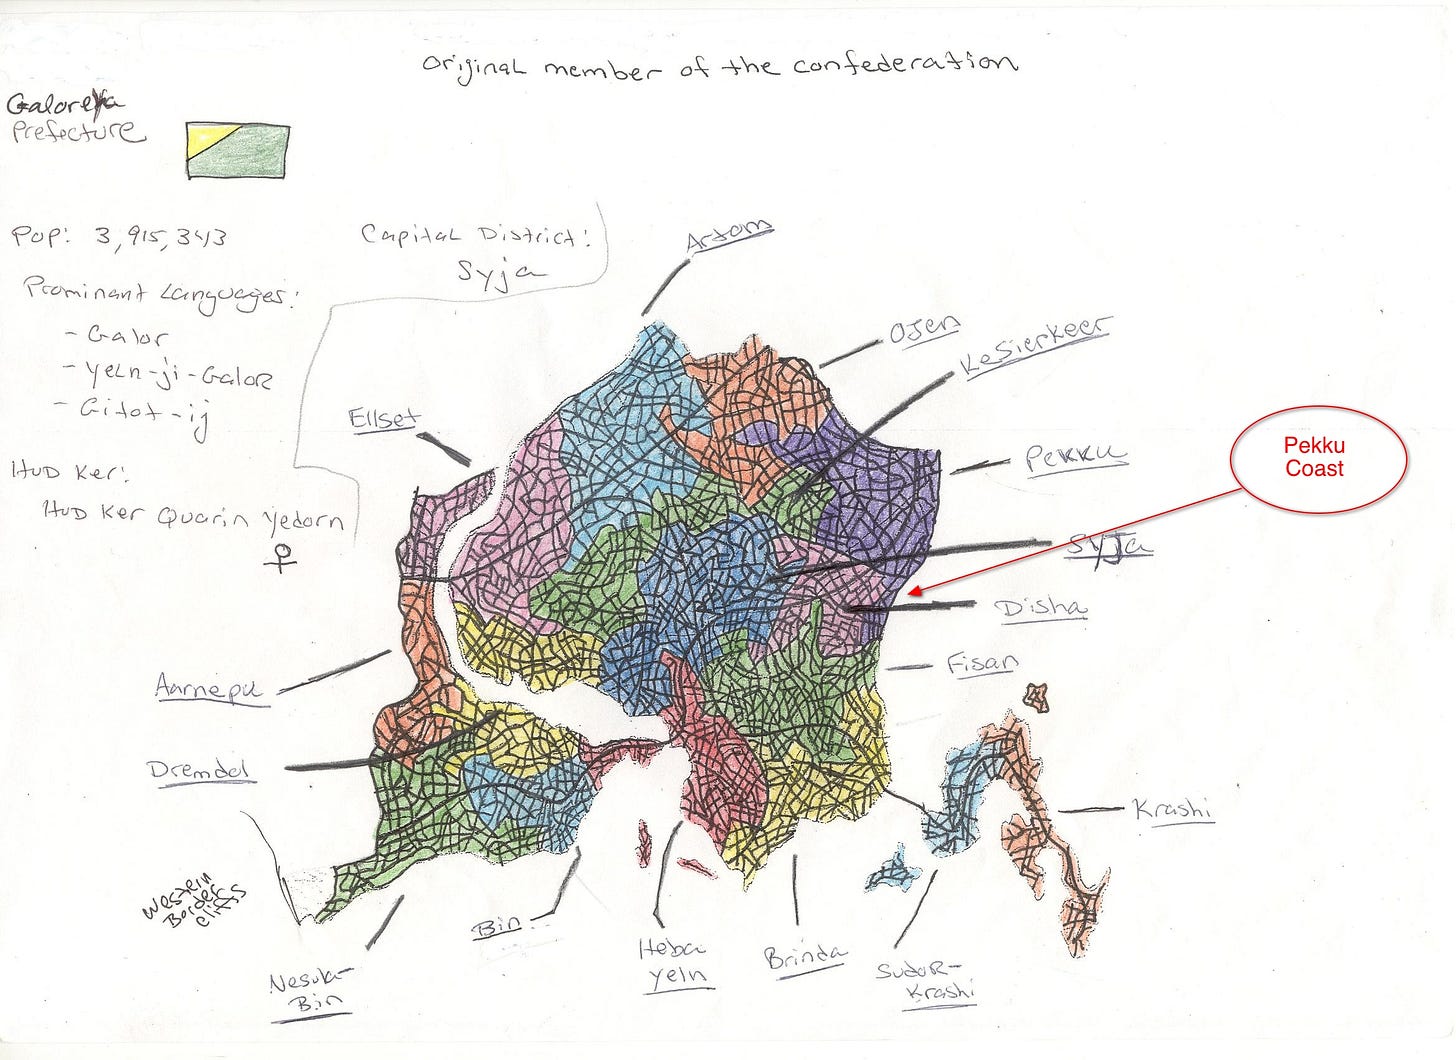 Original member of the confederation
Prefecture
Pop: 3,915,343
Capital District:
Syja
Prominant Languages:
- Galor
- Yeln-ji-Galor
- Gitot-ij
Hud Ker:
Hud Ker Quarin Yedorn
♀
Artom
Ojen
Kesierkeer
Ellset
Pekku
Pekku
Coast
Syja
Disha
Fisan
Aarnepu
Dremdel
Krashi
Western
Border
Cliffs
Bin
Nesula-
Bin
Heba
Yeln
Brinda
Sudor-
Krashi